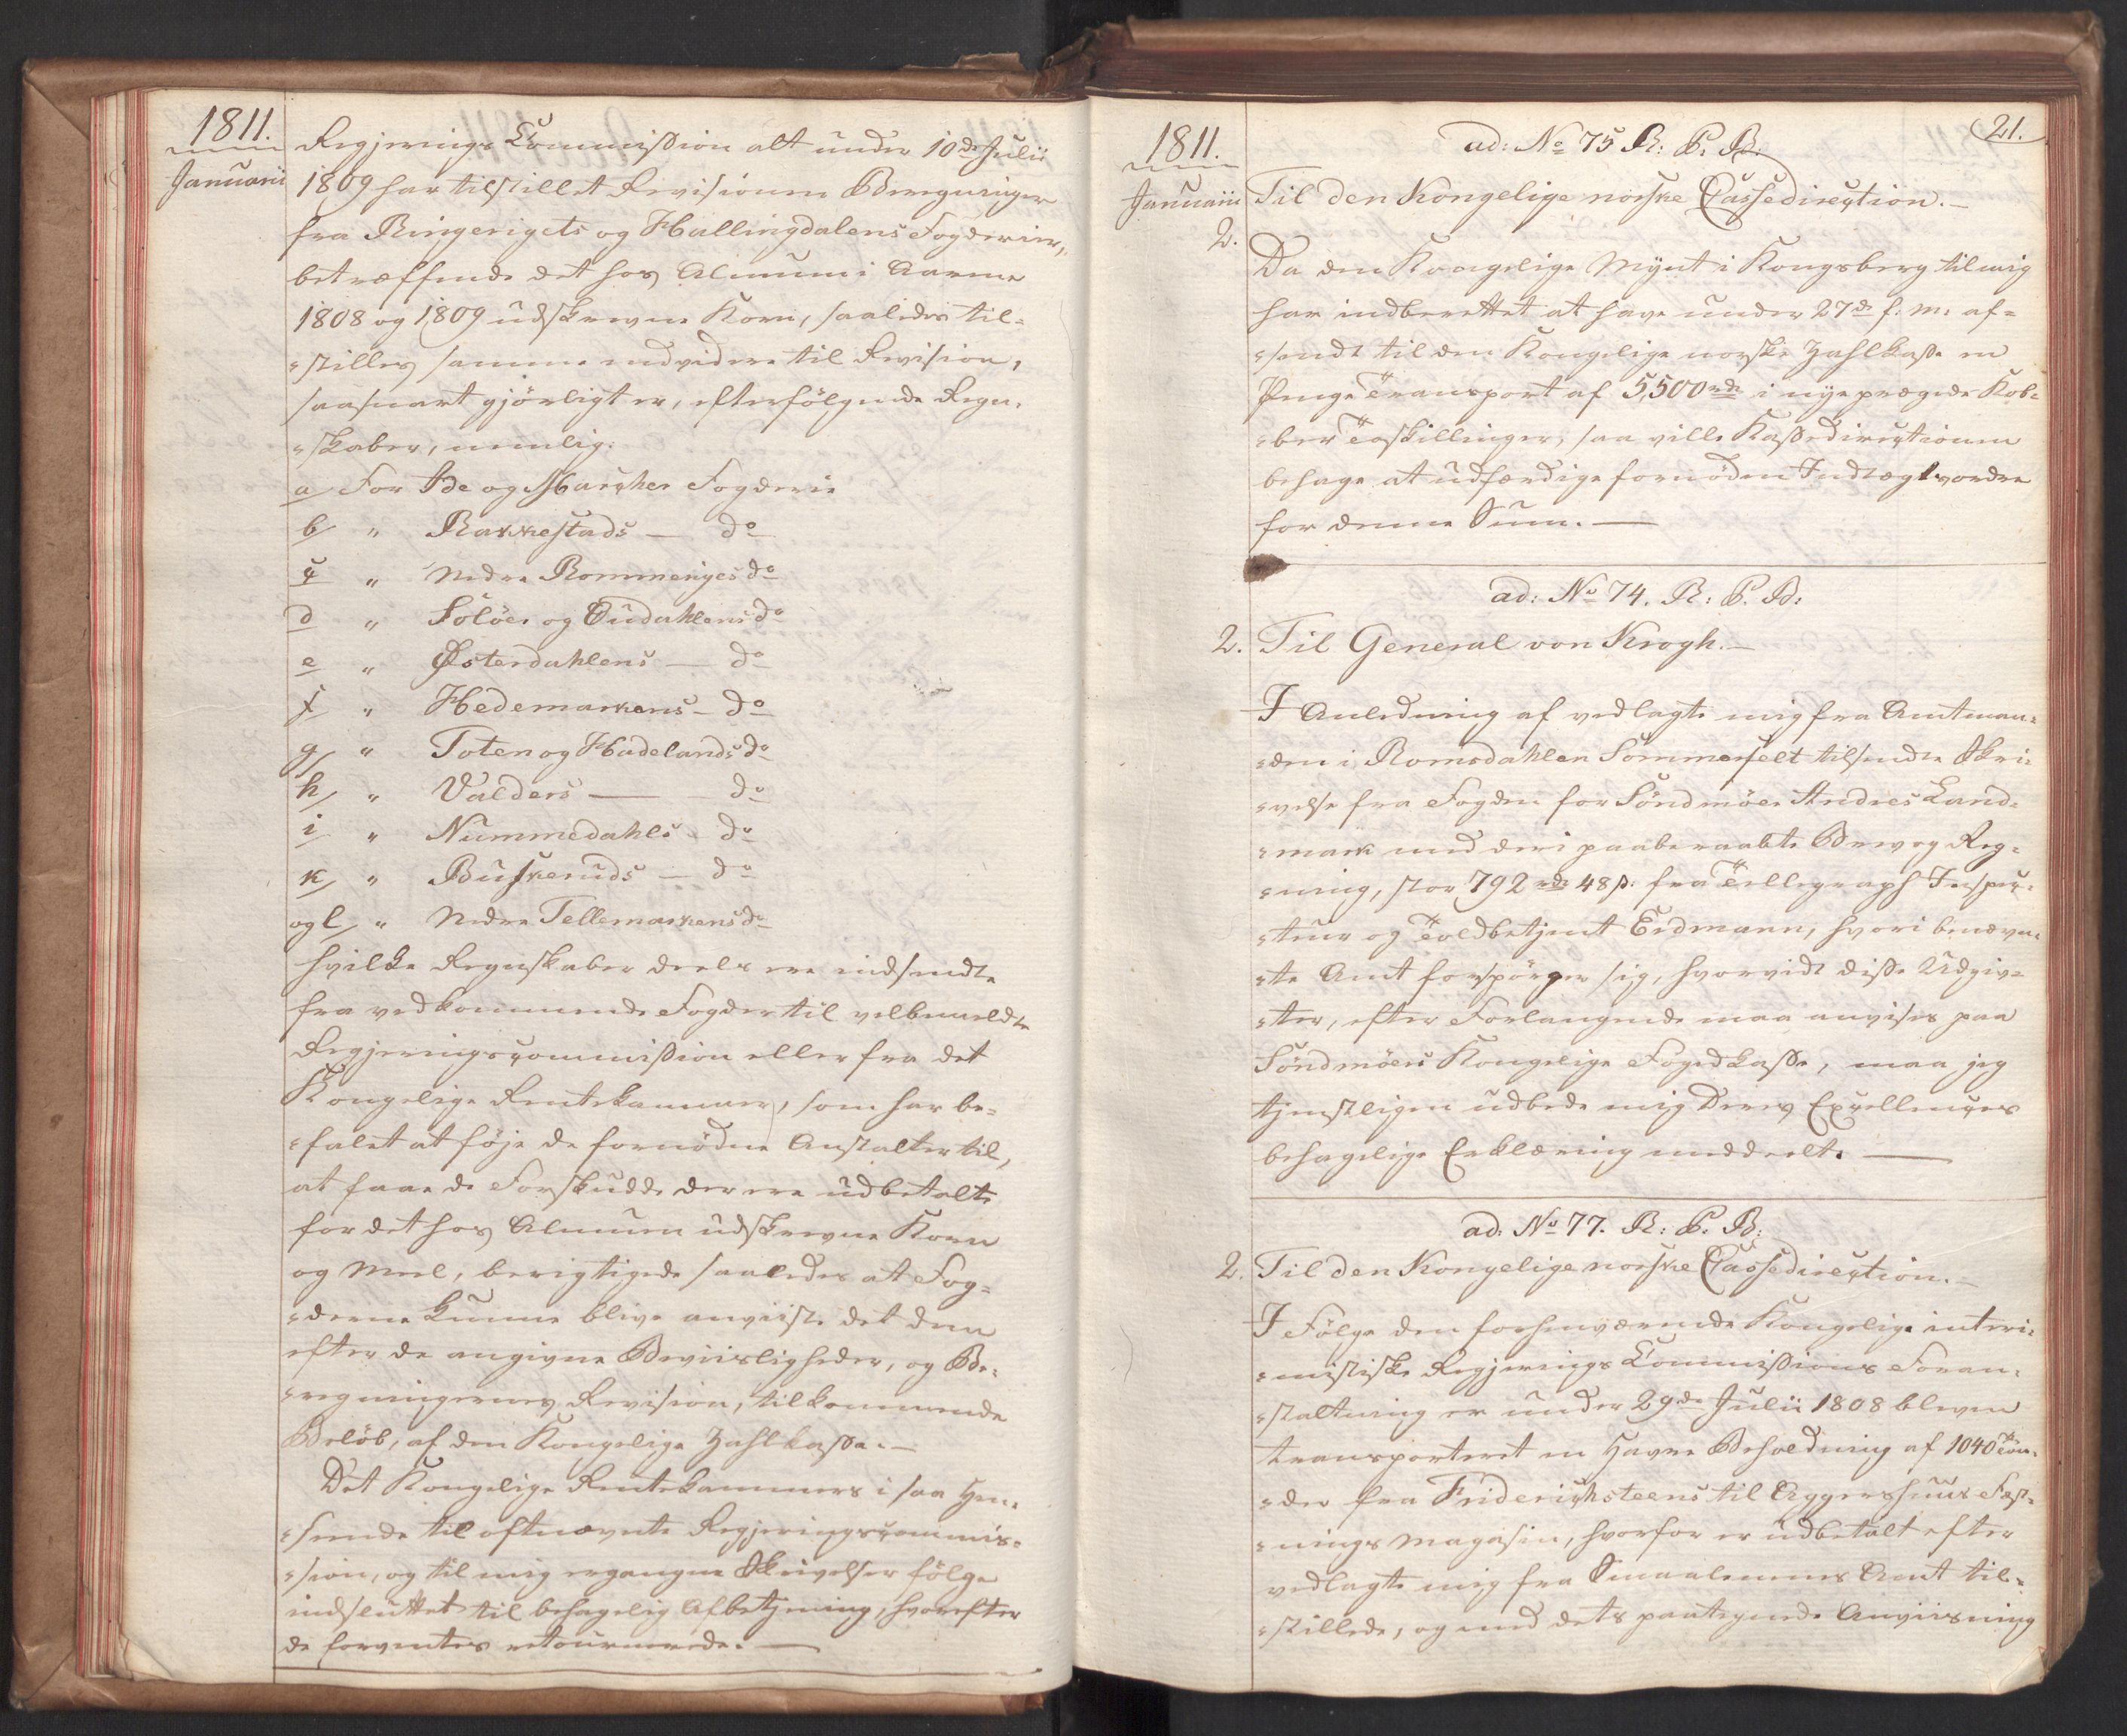 1811.
Januarii
Regjerings Commission alt under 10de Julii
1809 har tilstillet Revisionen Beregninger
fra Ringerigets og Hallingdalens Fogderier,
betræffende det hos Almuen i Aarene
1808 og 1809 udskrevne Korn, saaledes til-
-stilles samme endvidere til Revision,
saasnart gjørligt er, efterfølgende Regn-
-skaber, nemlig:
a For Ide og Marcher Fogderie
b/ " Rakkestads — do
c " Nedre Rommeriges do
d " Soløer og Oudahlens do
e " Østerdahlens — do
f " Hedemarkens — do
g/ " Toten og Hadelands do
h/ " Valders — do
i " Nummedahls — do
k/ " Buskeruds — do
og l/ " Nedre Tellemarkens do
hvilke Regnskaber deels ere indsendte
fra vedkommende Fogder til velbemeldte
Regjeringscommission eller fra det
Kongelige Rentekammer, som har be-
-falet at føje de fornødne Anstalter til,
at faae de Forskudde der ere udbetalte
for det hos Almuen udskrevne Korn
og Meel, berigtigede saaledes at Fog-
-derne kunne blive anviiste det dem
efter de angivne Beviisligheder, og Be-
-regningernes Revision, tilkommende
Beløb, af den Kongelige Zahlkasse. —
Det Kongelige Rentekammers i saa Hen-
-seende til oftnævnte Regjeringscommis-
-sion, og til mig ergangne Skrivelser følge
indsluttet til behagelig Afbetjening, hvorefter
de forventes retournerede. —
21.
1811.
Januarii
ad: No 75 R: P. B:
2. Til den Kongelige norske Cassedirection. —
Da den Kongelige Mynt i Kongsberg til mig
har indberettet at have under 27de f: M: af-
-sendt til den Kongelige norske Zahlkasse en
Penge Transport af 5,500 rdr i nye prægede Kob-
-ber Toskillinger, saa ville Kassedirectionen
behage at udfærdige fornøden Indtægtsordre
for denne Sum. —
ad: No 74. R: P. B:
2. Til General von Krogh. —
I Anledning af vedlagte mig fra Amtman-
-den i Romsdahlen Sommerfelt tilsendte Skri-
-velse fra Fogden for Søndmøer Andres Land-
-mark med deri paaberaabte Brev og Reg-
-ning, stor 792 rdr 48 s: fra Tellegraph Inspec-
-teur og Toldbetjent Erdmann, hvori benævn-
-te Amt forspørger sig, hvorvidt disse Udgiv-
-ter, efter Forlangende maa anvises paa
Søndmøers Kongelige Fogedkasse, maa jeg
tjenstligen udbede mig Deres Excellences
behagelige Erklæring meddeelt. —
ad: No 77. R: P. B:
2. Til den Kongelige norske Cassedirection. —
I Følge den forhenværende Kongelige interi-
-mistiske Regjerings Commissions Foran-
-staltning er under 29de Julii 1808 bleven
transporteret en Havre Beholdning af 1040 Tøn-
-der fra Friderichsteens til Aggershuus Fæst-
-nings Magasin, hvorfor er udbetalt efter
vedlagte mig fra Smaalenenes Amt til-
-stillede, og med dets paategnede Anviisning